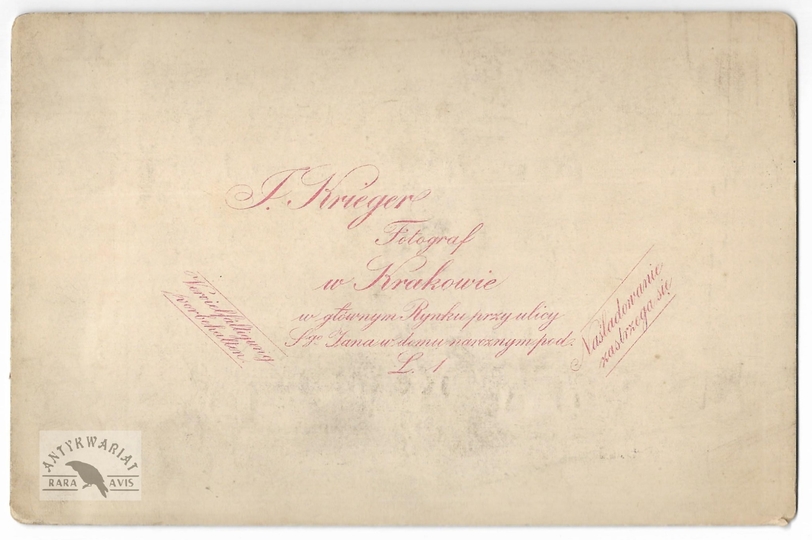 F. Krieger
Fotograf
w Krakowie
w głównym Rynku przy ulicy
Sgo Jana w domu narożnym pod:
L. 1
Vervielfältigung
vorbehalten.
Naśladowanie
zastrzega się
ANTYKWARIAT
RARA AVIS